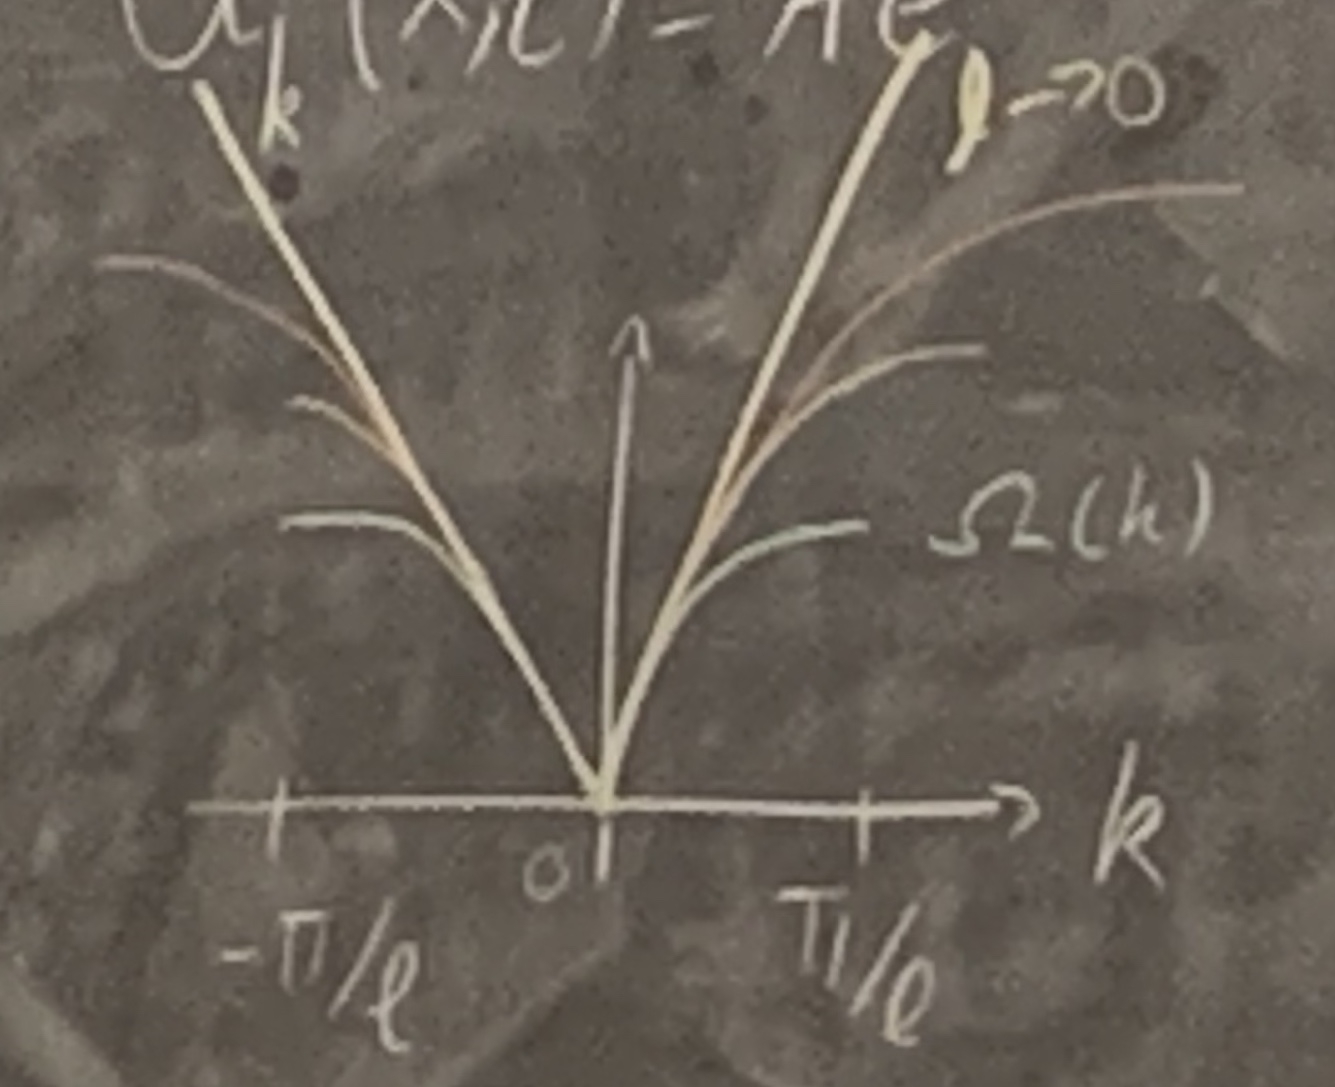 U_k(x,t) = Ae
l→0
Ω(k)
k
0
-π/l
π/l